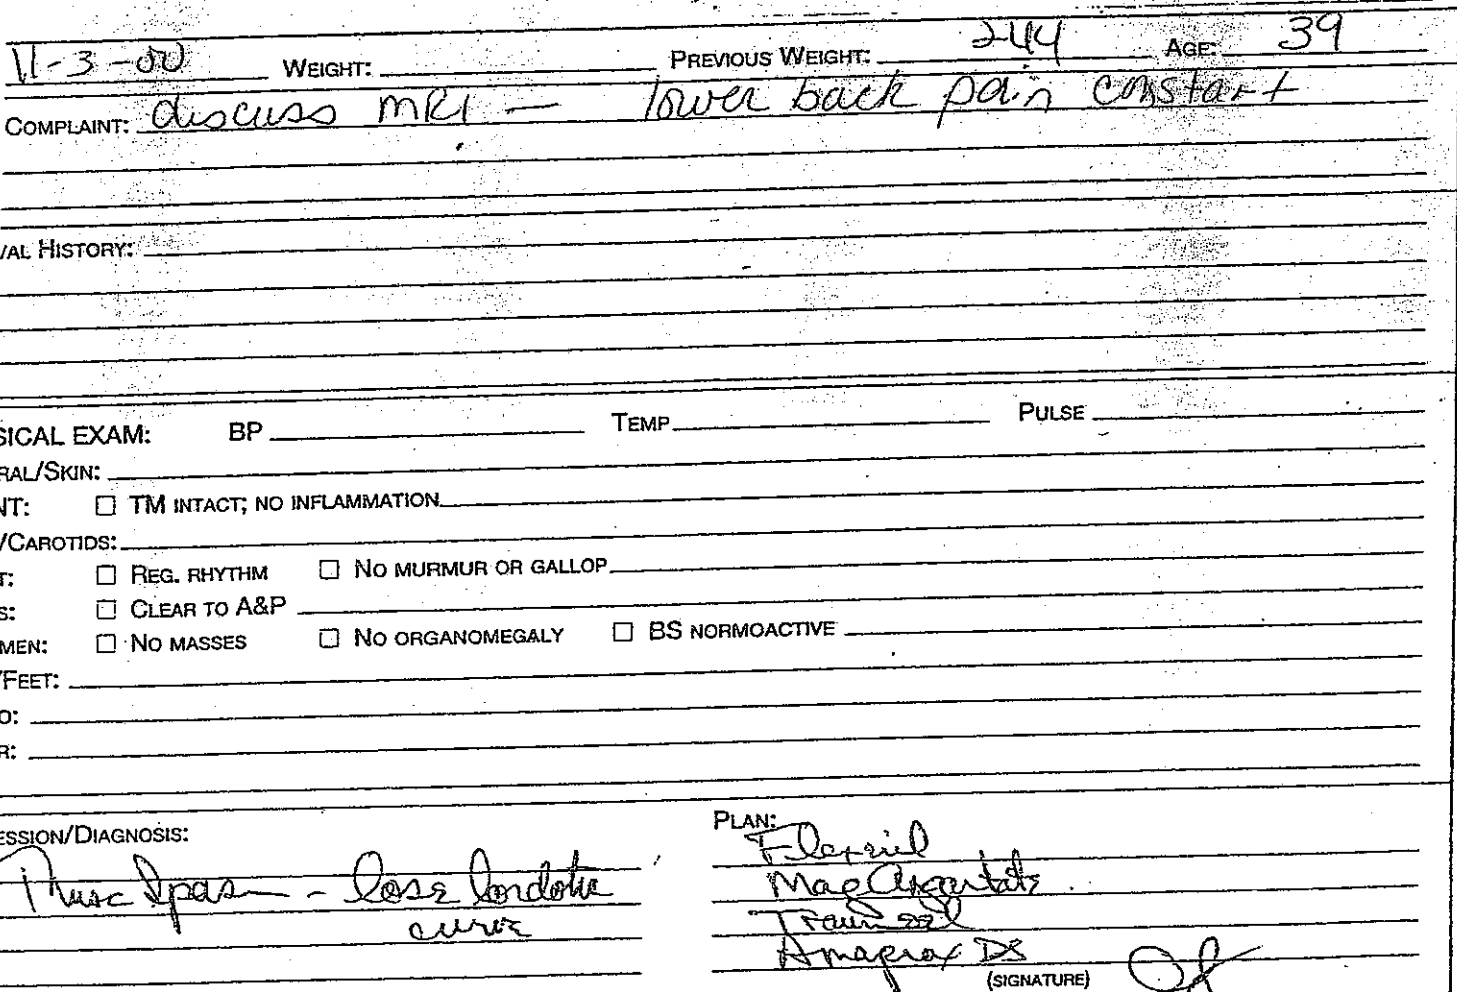 11-3-00 WEIGHT: PREVIOUS WEIGHT: 244 AGE: 39
COMPLAINT: discuss MRI — lower back pain constant
VAL HISTORY:
SICAL EXAM: BP TEMP PULSE
RAL/SKIN:
NT: ☐ TM INTACT; NO INFLAMMATION
/CAROTIDS:
T: ☐ REG. RHYTHM ☐ NO MURMUR OR GALLOP
S: ☐ CLEAR TO A&P
MEN: ☐ NO MASSES ☐ NO ORGANOMEGALY ☐ BS NORMOACTIVE
/FEET:
O:
R:
ESSION/DIAGNOSIS:
Musc Spasm - lose lordotic
curve
PLAN:
Flexeril
Mag Aspartate
Traumeel
Anaprox DS
(SIGNATURE)